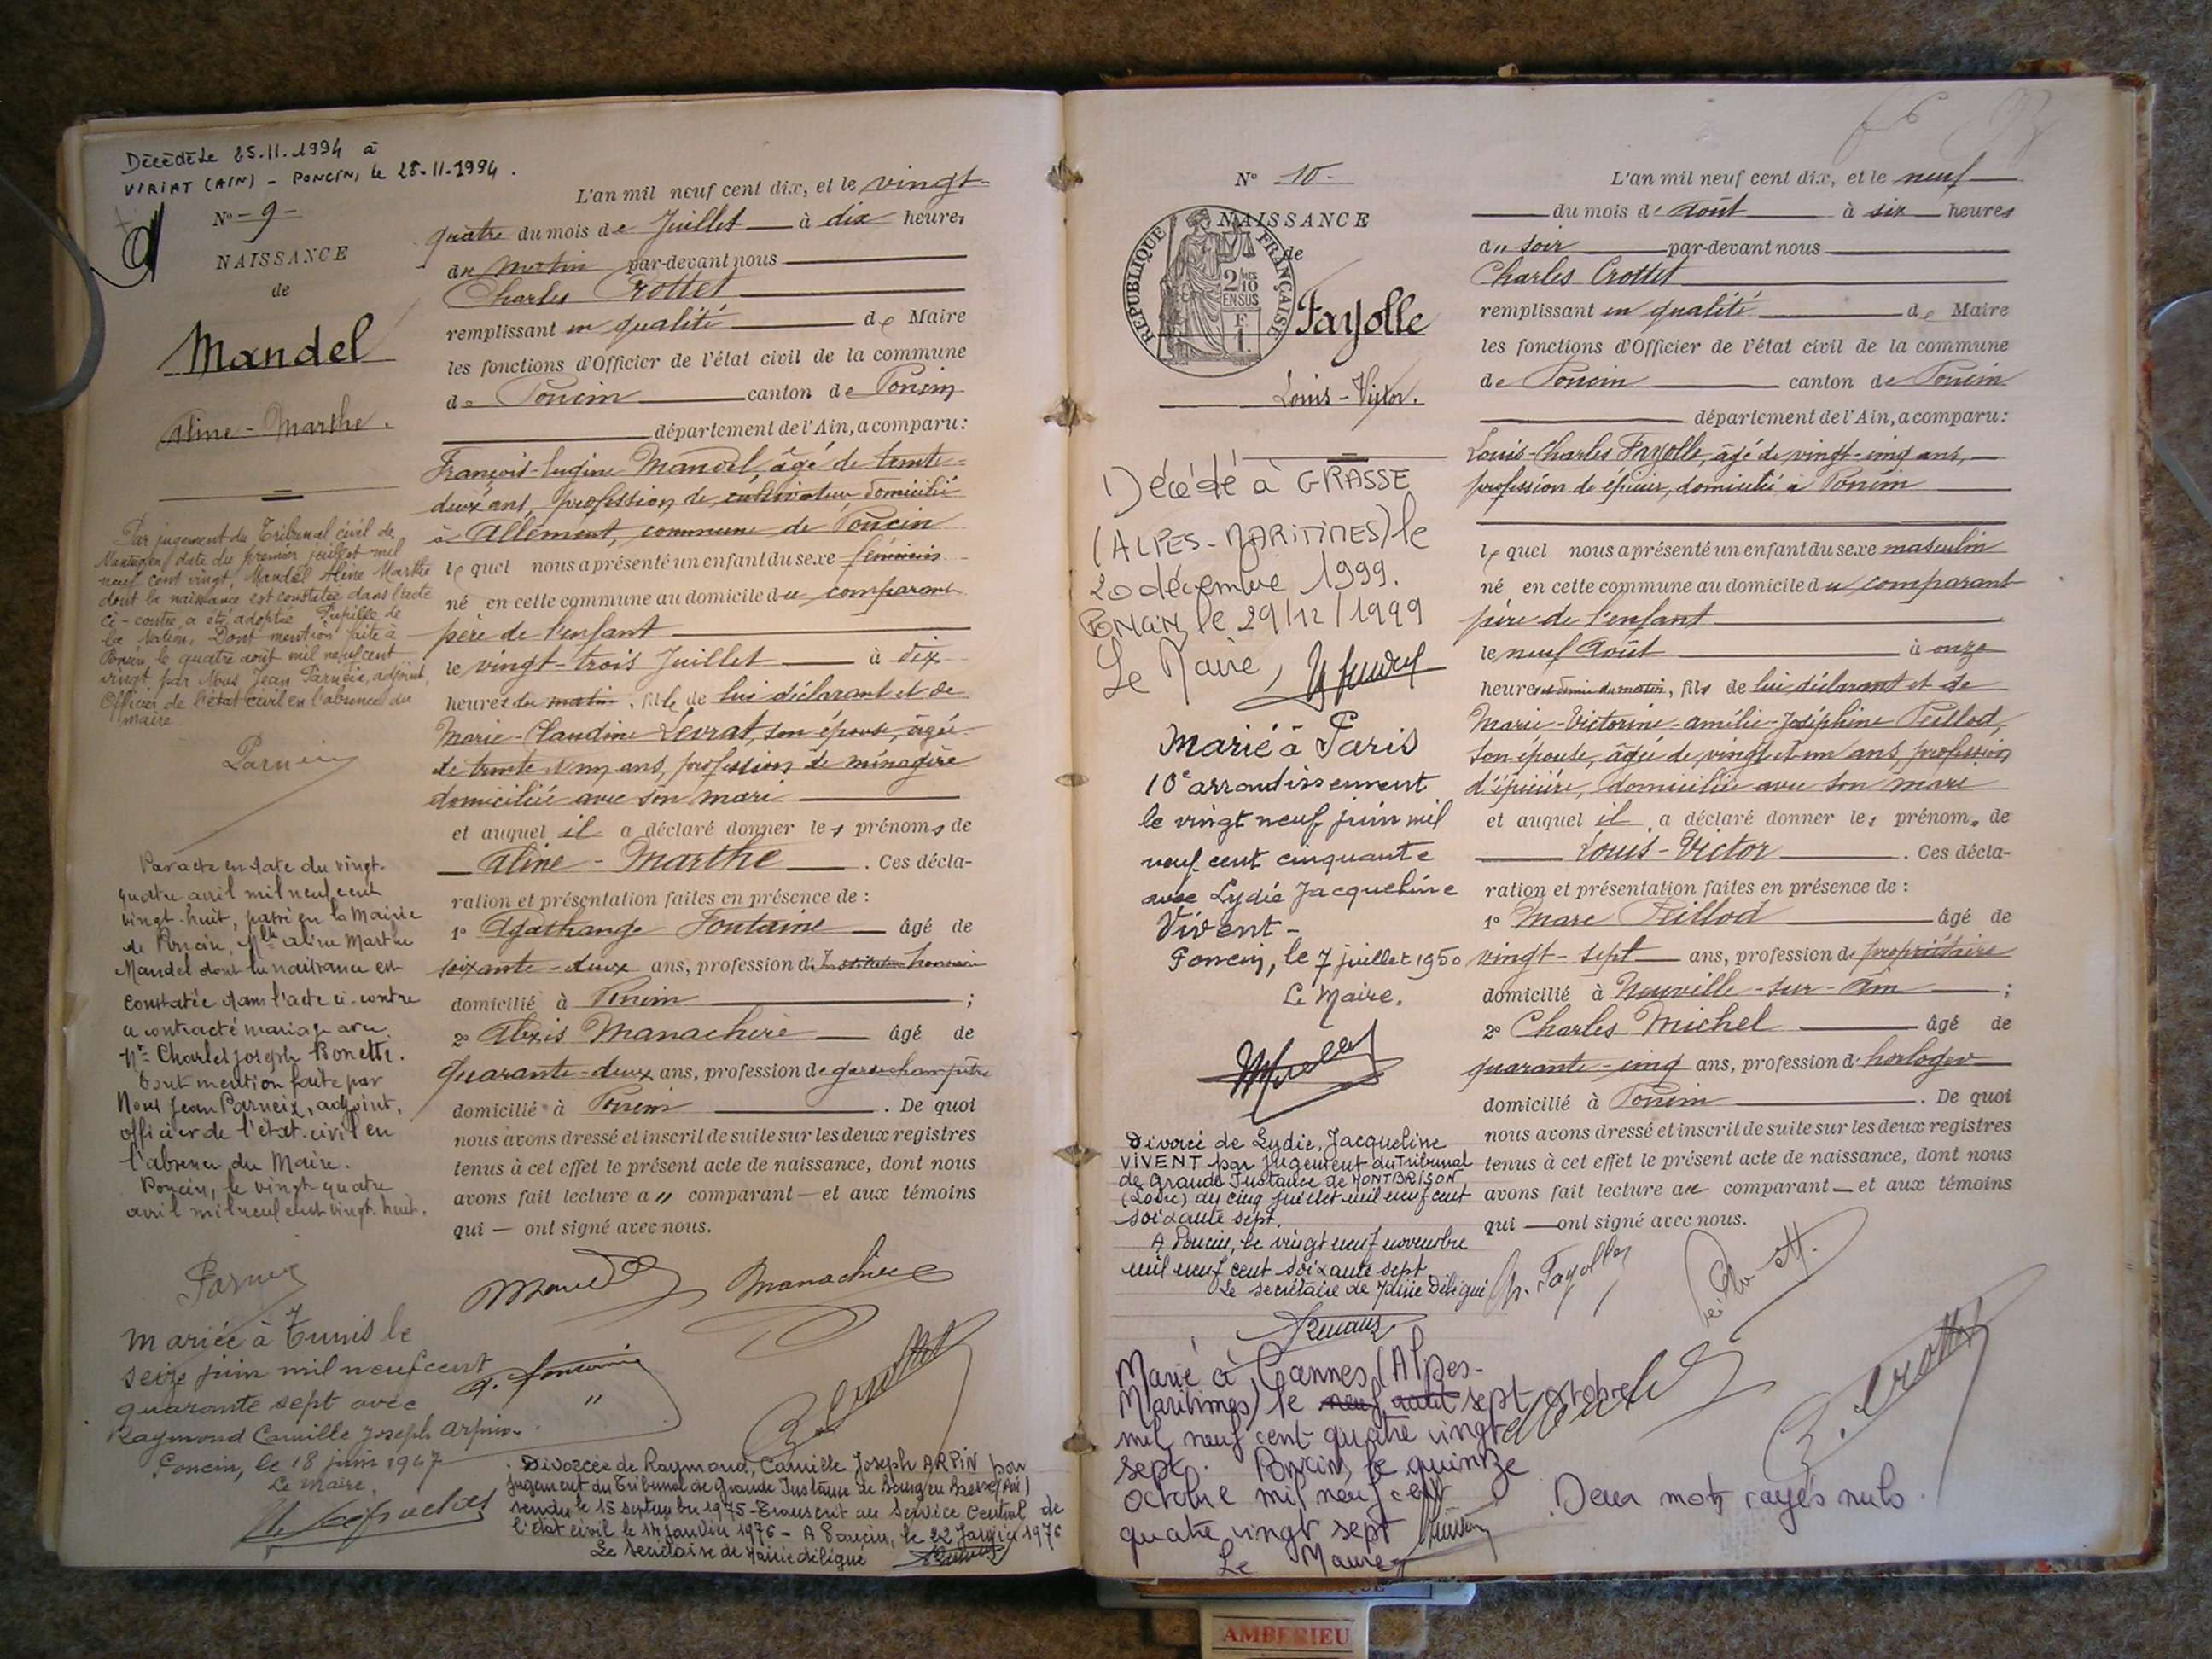 Décédée le 25.11.1994 à
VIRIAT (AIN) - PONCIN, le 28-11-1994.
N° - 9 -
NAISSANCE
de
Mandel
Aline-Marthe.
Par jugement du Tribunal civil de
Nantua en date du premier juillet mil
neuf cent vingt, Mandel Aline Marthe
dont la naissance est constatée dans l'acte
ci-contre, a été adoptée Pupille de
la Nation. Dont mention faite à
Poncin, le quatre août mil neuf cent
vingt par Nous Jean Parneix, adjoint,
Officier de l'état civil en l'absence du
maire
Parneix
Par acte en date du vingt-
quatre avril mil neuf cent
vingt-huit, passé en la Mairie
de Poncin, Mlle Aline Marthe
Mandel dont la naissance est
constatée dans l'acte ci-contre
a contracté mariage avec
Mr Charles Joseph Bonetti.
Dont mention faite par
Nous Jean Parneix, adjoint,
officier de l'état-civil en
l'absence du Maire.
Poncin, le vingt quatre
avril mil neuf cent vingt-huit.
Mariée à Tunis le
seize juin mil neuf cent
quarante sept avec
Raymond Camille Joseph Arpin.
Poncin, le 18 juin 1947
Le Maire,
L'an mil neuf cent dix, et le vingt-
quatre du mois de Juillet à dix heures
du matin par-devant nous
Charles Crottet
remplissant en qualité de Maire
les fonctions d'Officier de l'état civil de la commune
de Poncin canton de Poncin
département de l'Ain, a comparu:
François-Eugène Mandel, âgé de trente-
deux ans, profession de cultivateur, domicilié
à Allement, commune de Poncin
lequel nous a présenté un enfant du sexe féminin
né en cette commune au domicile du comparant
père de l'enfant
le vingt-trois Juillet à dix
heures du matin, fille de lui déclarant et de
Marie-Claudine Levrat, son épouse, âgée
de trente et un ans, profession de ménagère
domiciliée avec son mari
et auquel il a déclaré donner les prénoms de
Aline-Marthe. Ces décla-
ration et présentation faites en présence de :
1° Agathange Fontaine âgé de
soixante-deux ans, profession d'Instituteur honoraire
domicilié à Poncin ;
2° Alexis Manachère âgé de
Quarante-deux ans, profession de garde champêtre
domicilié à Poncin. De quoi
nous avons dressé et inscrit de suite sur les deux registres
tenus à cet effet le présent acte de naissance, dont nous
avons fait lecture au comparant et aux témoins
qui ont signé avec nous.
Mandel
Manachère
Divorcée de Raymond, Camille Joseph ARPIN par
jugement du Tribunal de Grande Instance de Bourg en Bresse (Ain)
rendu le 15 septembre 1975 - Transcrit au Service Central de
l'état civil le 14 janvier 1976 - A Poncin, le 22 Janvier 1976
Le secrétaire de Mairie délégué
N° 10
NAISSANCE
de
REPUBLIQUE FRANÇAISE
2/10
EN SUS
Fayolle
Louis-Victor.
Décédé à GRASSE
(ALPES-MARITIMES) le
20 décembre 1999.
Poncin, le 29/12/1999
Le Maire,
Marié à Paris
10e arrondissement
le vingt neuf juin mil
neuf cent cinquante
avec Lydie Jacqueline
Vivent-
Poncin, le 7 juillet 1950
Le Maire,
Divorcé de Lydie, Jacqueline
VIVENT par jugement du Tribunal
de Grande Instance de MONTBRISON
(Loire) du cinq juillet mil neuf cent
soixante sept.
A Poncin, le vingt neuf novembre
mil neuf cent soixante sept
Le secrétaire de Mairie Délégué
Marié à Cannes (Alpes-
Maritimes) le neuf août sept octobre
mil neuf cent quatre vingt
sept. Poncin, le quinze
octobre mil neuf cent
quatre vingt sept
Le Maire
L'an mil neuf cent dix, et le neuf
du mois d'Août à six heures
du soir par-devant nous
Charles Crottet
remplissant en qualité de Maire
les fonctions d'Officier de l'état civil de la commune
de Poncin canton de Poncin
département de l'Ain, a comparu:
Louis-Charles Fayolle, âgé de vingt-cinq ans,
profession de épicier, domicilié à Poncin
lequel nous a présenté un enfant du sexe masculin
né en cette commune au domicile du comparant
père de l'enfant
le neuf Août à onze
heures et demie du matin, fils de lui déclarant et de
Marie-Victorine-Amélie-Joséphine Peillod,
son épouse, âgée de vingt et un ans, profession
d'épicière, domiciliée avec son mari
et auquel il a déclaré donner les prénoms de
Louis-Victor. Ces décla-
ration et présentation faites en présence de :
1° Marc Peillod âgé de
vingt-sept ans, profession de propriétaire
domicilié à Neuville-sur-Ain ;
2° Charles Michel âgé de
quarante-cinq ans, profession d'horloger
domicilié à Poncin. De quoi
nous avons dressé et inscrit de suite sur les deux registres
tenus à cet effet le présent acte de naissance, dont nous
avons fait lecture au comparant et aux témoins
qui ont signé avec nous.
Ch. Fayolle
C. Crottet
Deux mots rayés nuls.
AMBERIEU